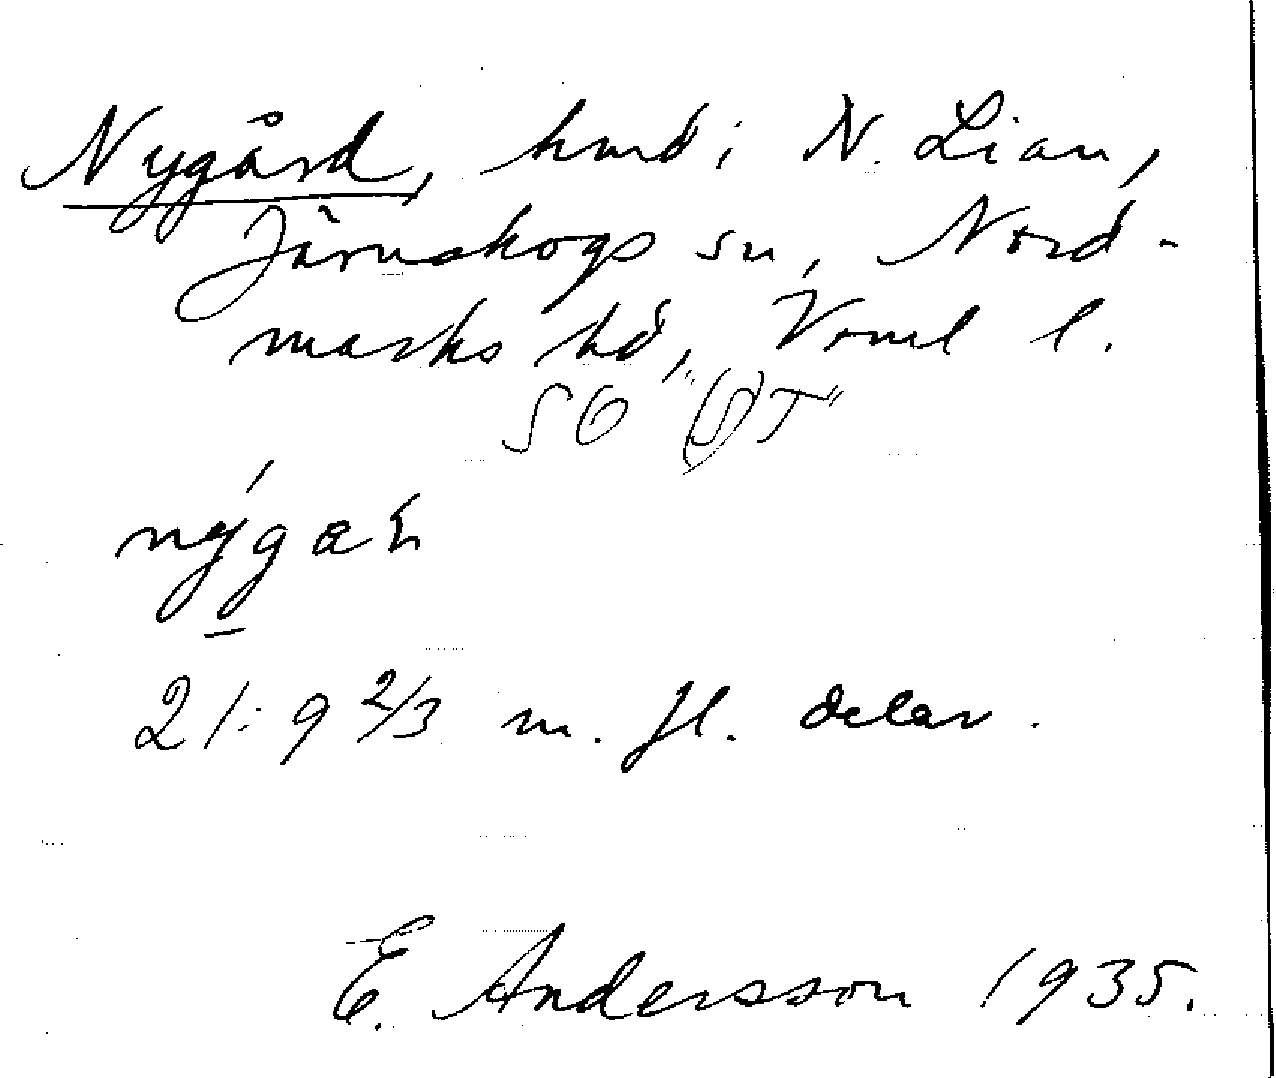 Nygård, hmd i N. Lian,
Järnskogs sn, Nord-
marks hd, Vrml l.
SO "(S)T"
nýgaɽ
21:9 2/3 m. fl. delar.
E. Andersson 1935.